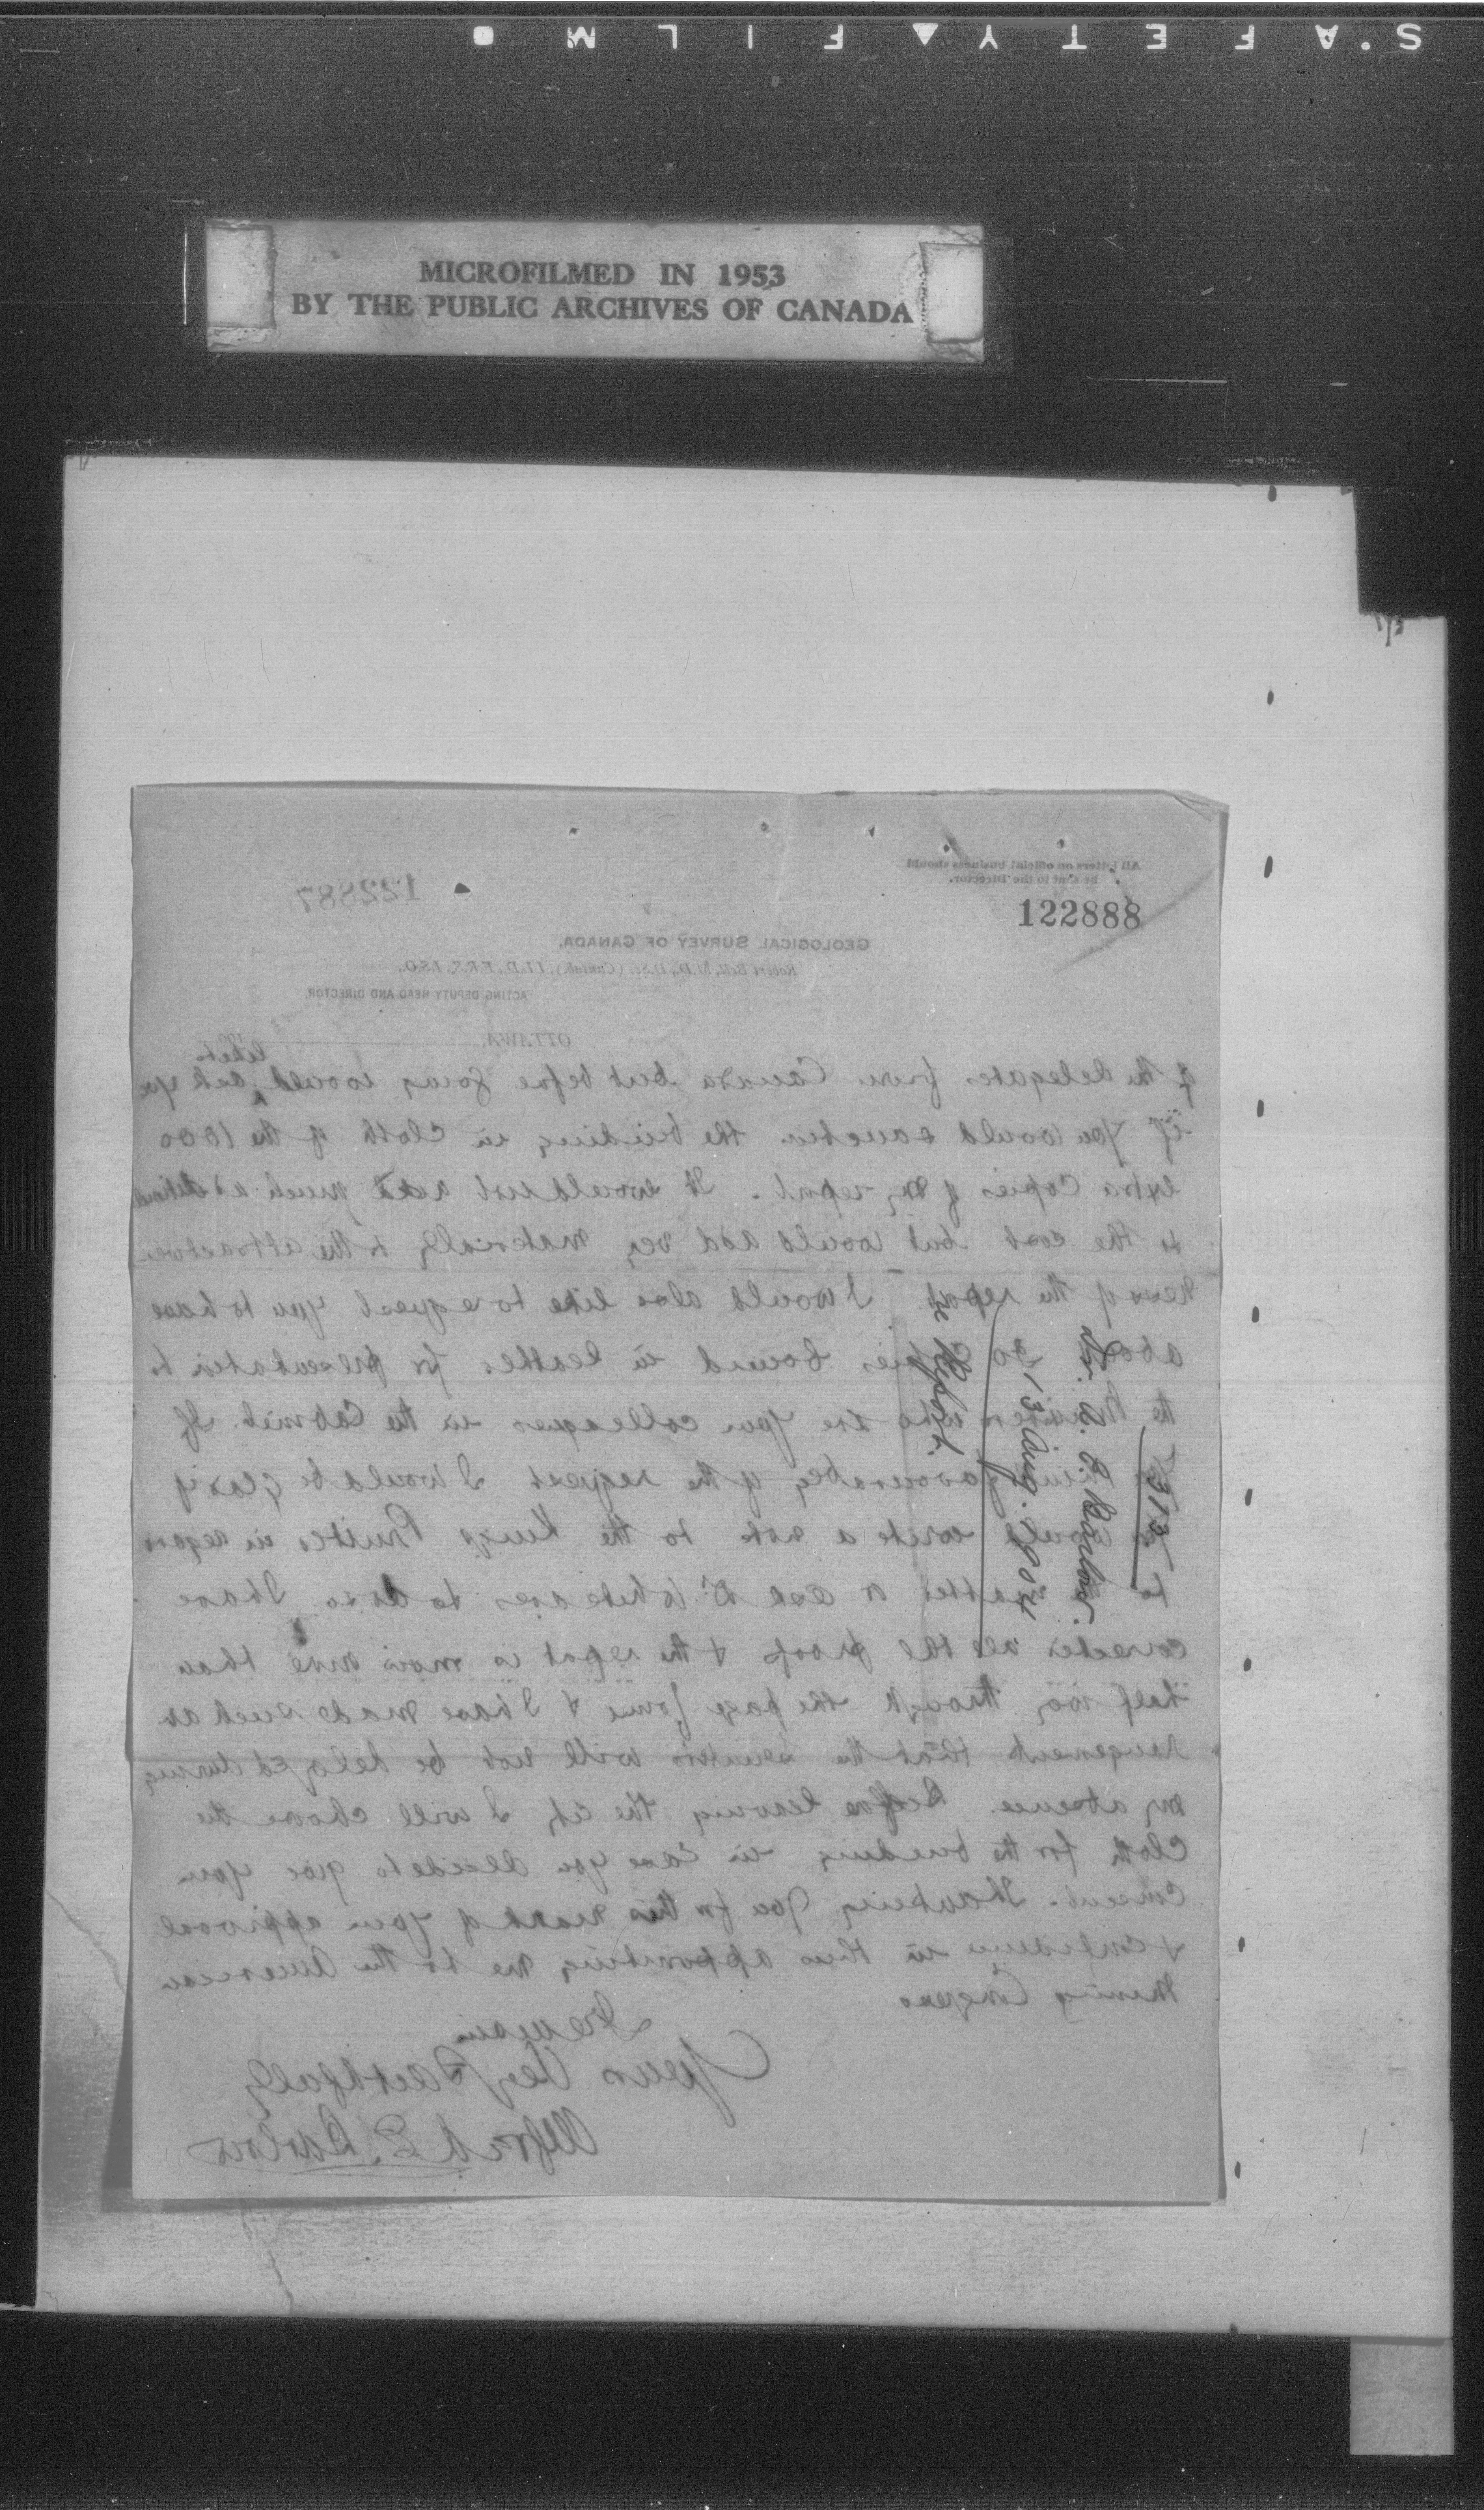 S'AFETY▲FILM●
MICROFILMED IN 1953
BY THE PUBLIC ARCHIVES OF CANADA
All letters on official business should
be sent to the Director.
122887
122888
GEOLOGICAL SURVEY OF CANADA.
Robert Bell, M.D., D.Sc. (Cantab), LL.D., F.R.S., I.S.O.
ACTING DEPUTY HEAD AND DIRECTOR
OTTAWA,
of the delegates from Canada but before going would like to ask you
if you would sanction the binding in cloth of the 1000
extra copies of my report. It would not add much additional
to the cost but would add very materially to the attractive
ness of the report I would also like to request you to have
about 20 copies bound in leather for presentation to
the Ministers who are your colleagues in the Cabinet. If
favourably of the request I would be glad if
you would write a note to the Kings Printer in regard
to matter or ask Dr Whiteaves to do so. I have
corrected all the proof & the report is more than
half way through the page form & I have made such ar
rangements that the will not be delayed during
my absence. Before leaving the city I will choose the
cloth for the binding in case you decide to give your
consent. Thanking you for this mark of your approval
& confidence in thus appointing me to the American
Mining Congress
I remain
Yours Very Faithfully
Alfred E. Barlow
7313
Dr. A. E. Barlow.
13 Aug. 1904
re Report.